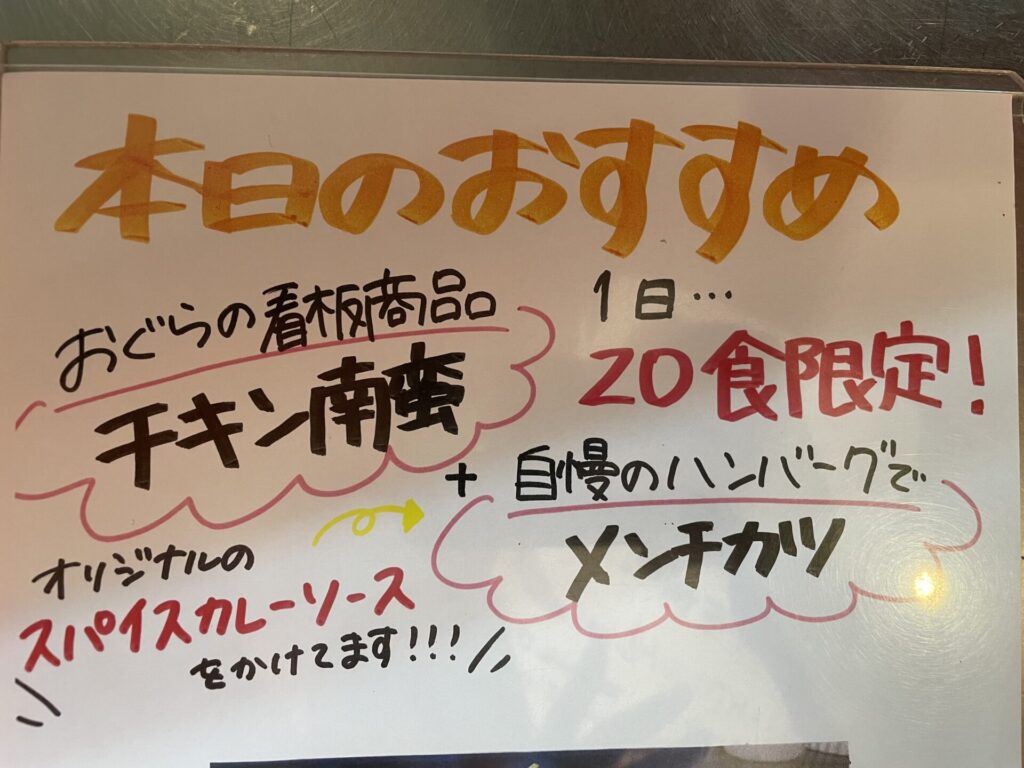 本日のおすすめ
おぐらの看板商品。
チキン南蛮
1日…
20食限定!
+
自慢のハンバーグで
メンチカツ
オリジナルの
スパイスカレーソース
をかけてます!!!